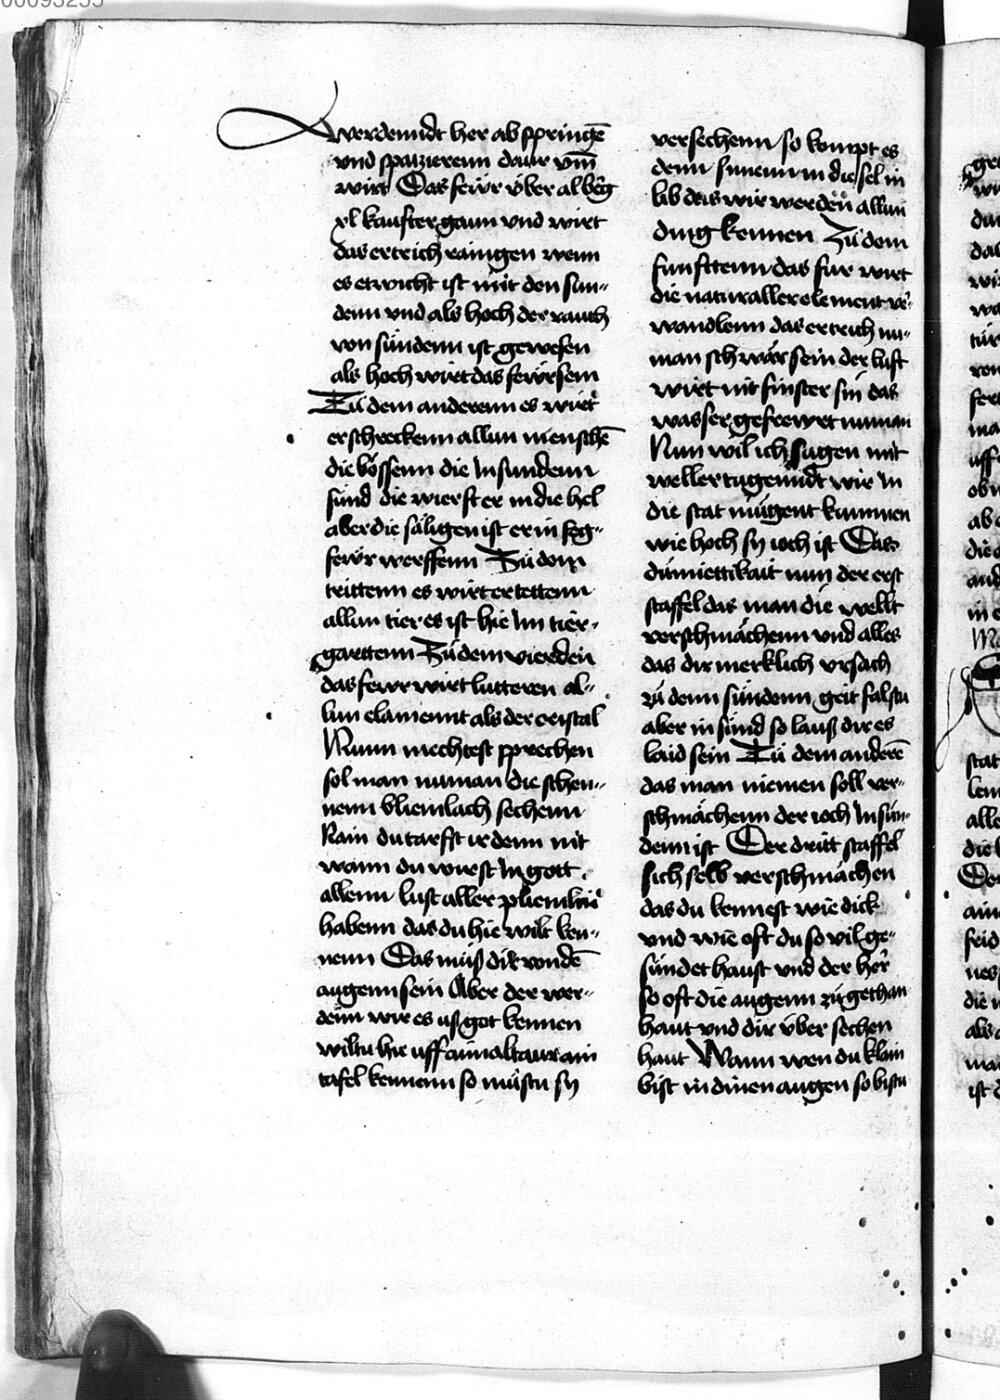 werdenndt her ab springē
vnd spatzierenn daur vm̄
wirt Das fewr v́ber al berg
xl kaufter gaun vnd wirt
das ertrich rainigen wenn
es etwicht ist mit den sun-
denn vnd als hoch der rauch
von sündenn ist gewesen
als hoch wirt das fewr sein
Zu dem anderenn es wirt
erschreckenn allun menschē
die bössenn die in sundenn
sind die wierfft er in die hel
aber die säligen ist er in feg-
fewr werffenn Zu dem
trittenn es wirt ertettenn
allun tier es ist hie Im tier-
garttenn Zu dem vierden
das fewr wirt lutteren al-
lun elamennt als der cristal
Nunn mechtest sprechen
sol man numan die schen-
nenn bliemlach sechenn
Nain du tarfft ir denn nit
wann du wirst In gott
allenn lust aller pliemlin
habenn das du hie wilt ken-
nenn Das müß dir von dē
augenn sein Aber der wer-
denn wir es uß got kennen
wiltu hie uff ainn altaur ain
tafel kennenn so müstu sy
versechenn so kompt es
denn sinenn in die sel in
lib das wir werden allun
ding kennen Zu dem
funfttenn das für wirt
die natur aller element ver-
wandlenn das ertrich nu-
man schwär sein der luft
wirt nit finster sin das
wasser gefrewrt numan
Nun wil ich sagen mit
weller tugenndt wir In
die stat mügent kummen
wie hoch sy ioch ist Das
dümiettikait nun der erst
staffel das man die wellt
verschmächenn vnd alles
das dir merklich vrsach
zu denn sündenn geit falstu
aber in sünd so lauß dir es
laid sein Zu dem anderē
das man niemen soll ver-
schmächenn der ioch In sün-
denn ist Der dritt staffel
sich selb verschmächen
das du kennest wie dick
vnd wie oft du so vil ge-
sündet haust vnd der her
so oft die augenn zu gethan
haut vnd dir über sechen
haut Wann wen du klain
bist in dinen augen so bistu